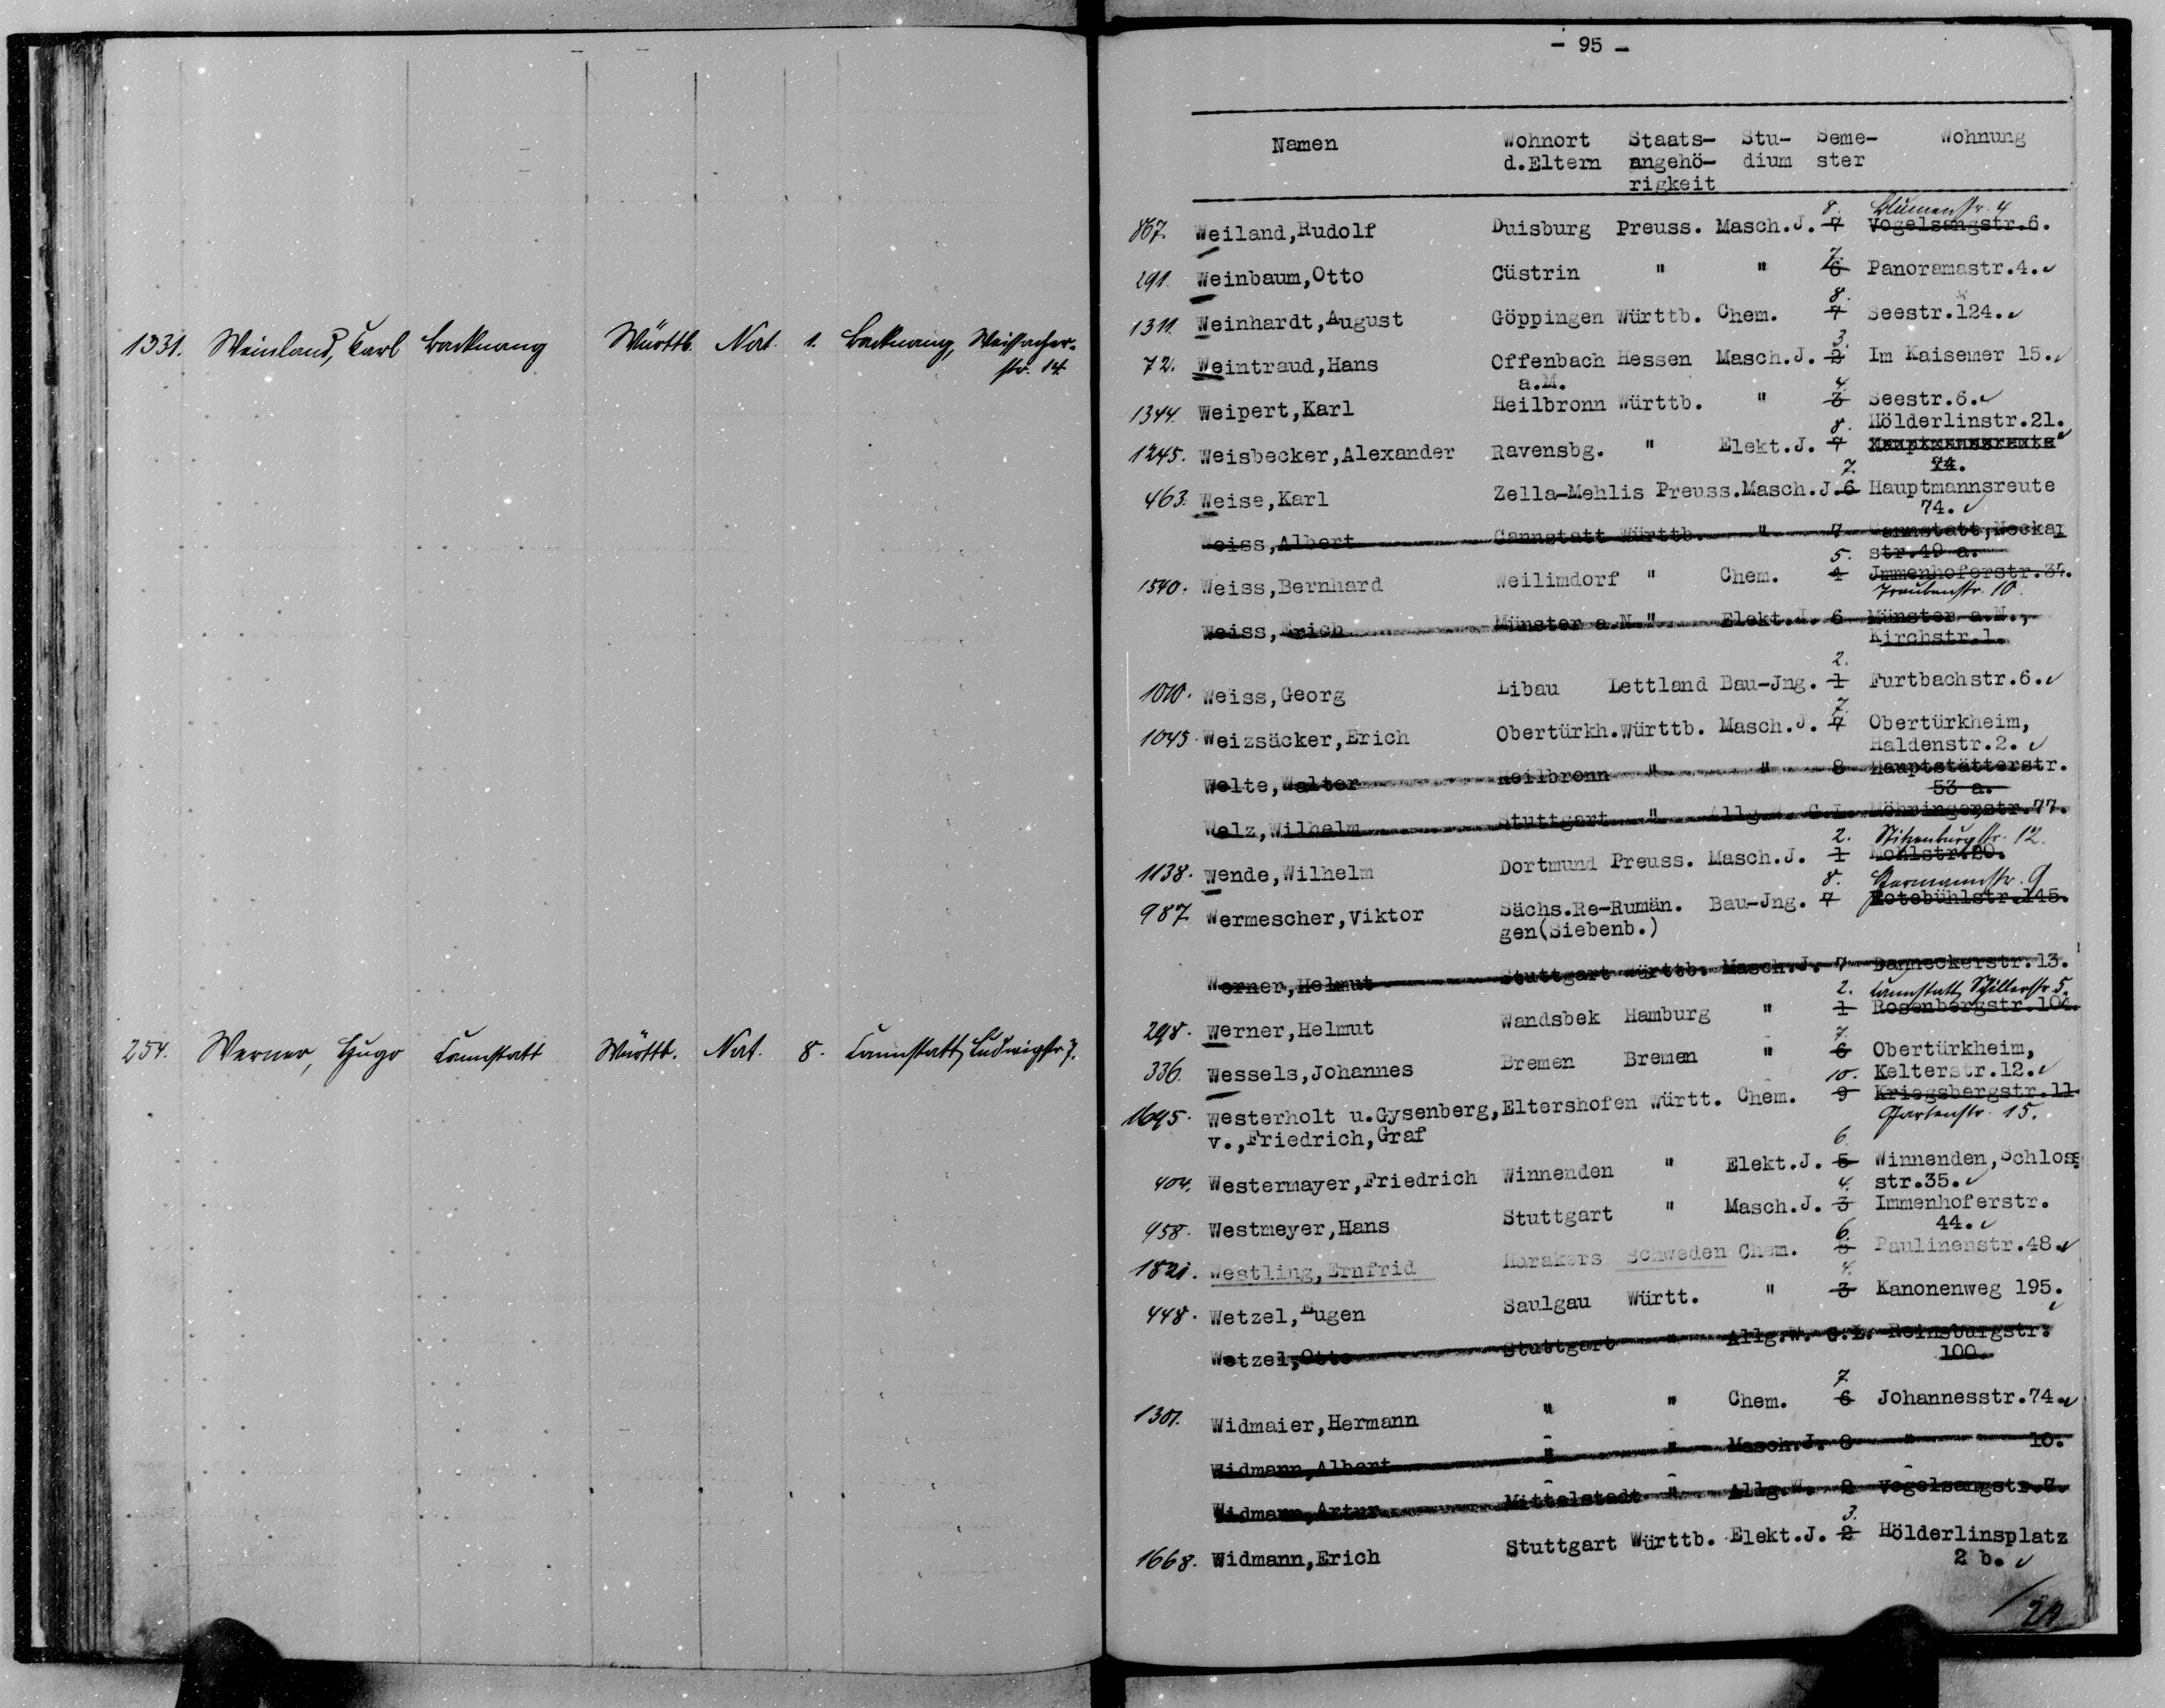 1331. Weinland, Karl Backnang Württb. Nat. 1. Backnang, Weissacher-
str. 14.
254. Werner, Hugo Cannstatt Württb. Nat. 8. Cannstatt, Ludwigstr. 7.
- 95 -
Namen Wohnort Staats- Stu- Seme- Wohnung
d.Eltern angehö- dium ster
rigkeit
8. Blumenstr. 4
867. Weiland,Rudolf Duisburg Preuss. Masch.J. 7 Vogelsangstr.6.
7.
291. Weinbaum,Otto Cüstrin " " 6 Panoramastr.4.
8.
1311. Weinhardt,August Göppingen Württb. Chem. 7 Seestr.124.
3.
72. Weintraud,Hans Offenbach Hessen Masch.J. 2 Im Kaisemer 15.
a.M.
4.
1344. Weipert,Karl Heilbronn Württb. " 3 Seestr.6.
8. Hölderlinstr.21.
1245. Weisbecker,Alexander Ravensbg. " Elekt.J. 7 Hauptmannsreute
74.
7.
463. Weise,Karl Zella-Mehlis Preuss.Masch.J.6 Hauptmannsreute
74.
Weiss,Albert Cannstatt Württb. " 7 Cannstatt,Neckar
str.49 a.
5.
1540. Weiss,Bernhard Weilimdorf " Chem. 4 Jmmenhoferstr.34.
Traubenstr. 10.
Weiss,Erich Münster a.N." Elekt.J. 6 Münster a.N.,
Kirchstr.1.
2.
1010. Weiss,Georg Libau Lettland Bau-Jng. 1 Furtbachstr.6.
7.
1045. Weizsäcker,Erich Obertürkh.Württb. Masch.J. 7 Obertürkheim,
Haldenstr.2.
Welte,Walter Heilbronn " " 8 Hauptstätterstr.
53 a.
Welz,Wilhelm Stuttgart " Allg.W. G.L. Möhringerstr.77.
2. Stitzenburgstr. 12.
1138. Wende,Wilhelm Dortmund Preuss. Masch.J. 1 Mohlstr.20.
8. 9
987. Wermescher,Viktor Sächs.Re-Rumän. Bau-Jng. 7 Rotebühlstr.145.
gen(Siebenb.)
Werner,Helmut Stuttgart Württb. Masch.J. 7 Danneckerstr.13.
2. Cannstatt, Schillerstr. 5.
298. Werner,Helmut Wandsbek Hamburg " 1 Rosenbergstr.104.
7.
336. Wessels,Johannes Bremen Bremen " 6 Obertürkheim,
Kelterstr.12.
10.
1695. Westerholt u.Gysenberg,Eltershofen Württ. Chem. 9 Kriegsbergstr.11
v.,Friedrich,Graf Gartenstr. 15.
6.
404. Westermayer,Friedrich Winnenden " Elekt.J. 5 Winnenden,Schloss
str.35.
4.
458. Westmeyer,Hans Stuttgart " Masch.J. 3 Immenhoferstr.
44.
6.
1821. Westling,Ernfrid Harakers Schweden Chem. 5 Paulinenstr.48.
4.
448. Wetzel,Eugen Saulgau Württ. " 3 Kanonenweg 195.
Wetzel,Otto Stuttgart " Allg.W. G.L. Reinsburgstr.
100.
7.
1301. Widmaier,Hermann " " Chem. 6 Johannesstr.74.
Widmann,Albert " " Masch.J. 8 " 10.
Widmann,Artur Mittelstadt " Allg.W. 2 Vogelsangstr.7.
3.
1668. Widmann,Erich Stuttgart Württb. Elekt.J. 2 Hölderlinsplatz
2 b.